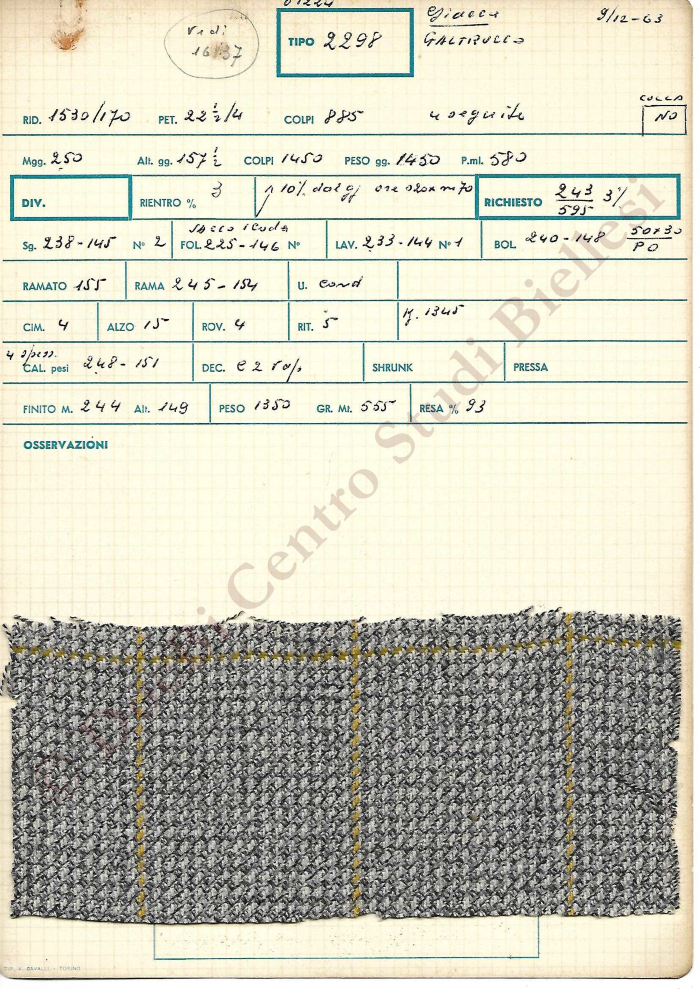 01224
Vedi
16137
TIPO 2298
Giacca
GALTRUCCO
9/12-63
RID. 1530/170 PET. 22 1/2/4 COLPI 885 eseguite
COLLA
NO
Mgg. 250 Alt. gg. 157 1/2 COLPI 1450 PESO gg. 1450 P.ml. 580
DIV. RIENTRO % 3 10% dal gg RICHIESTO 243 3%
595
Sg. 238-145 N° 2 FOL. 225-146 N° LAV. 233-144 N° 1 BOL. 240-148 50x30
PO
RAMATO 155 RAMA 245-154 U. cond
CIM. 4 ALZO 15 ROV. 4 RIT. 5 K. 1345
4 spess.
CAL. pesi 248-151 DEC. e 2 vap SHRUNK PRESSA
FINITO M. 244 Alt. 149 PESO 1350 GR. Mt. 555 RESA % 93
OSSERVAZIONI
Centro Studi Biellesi